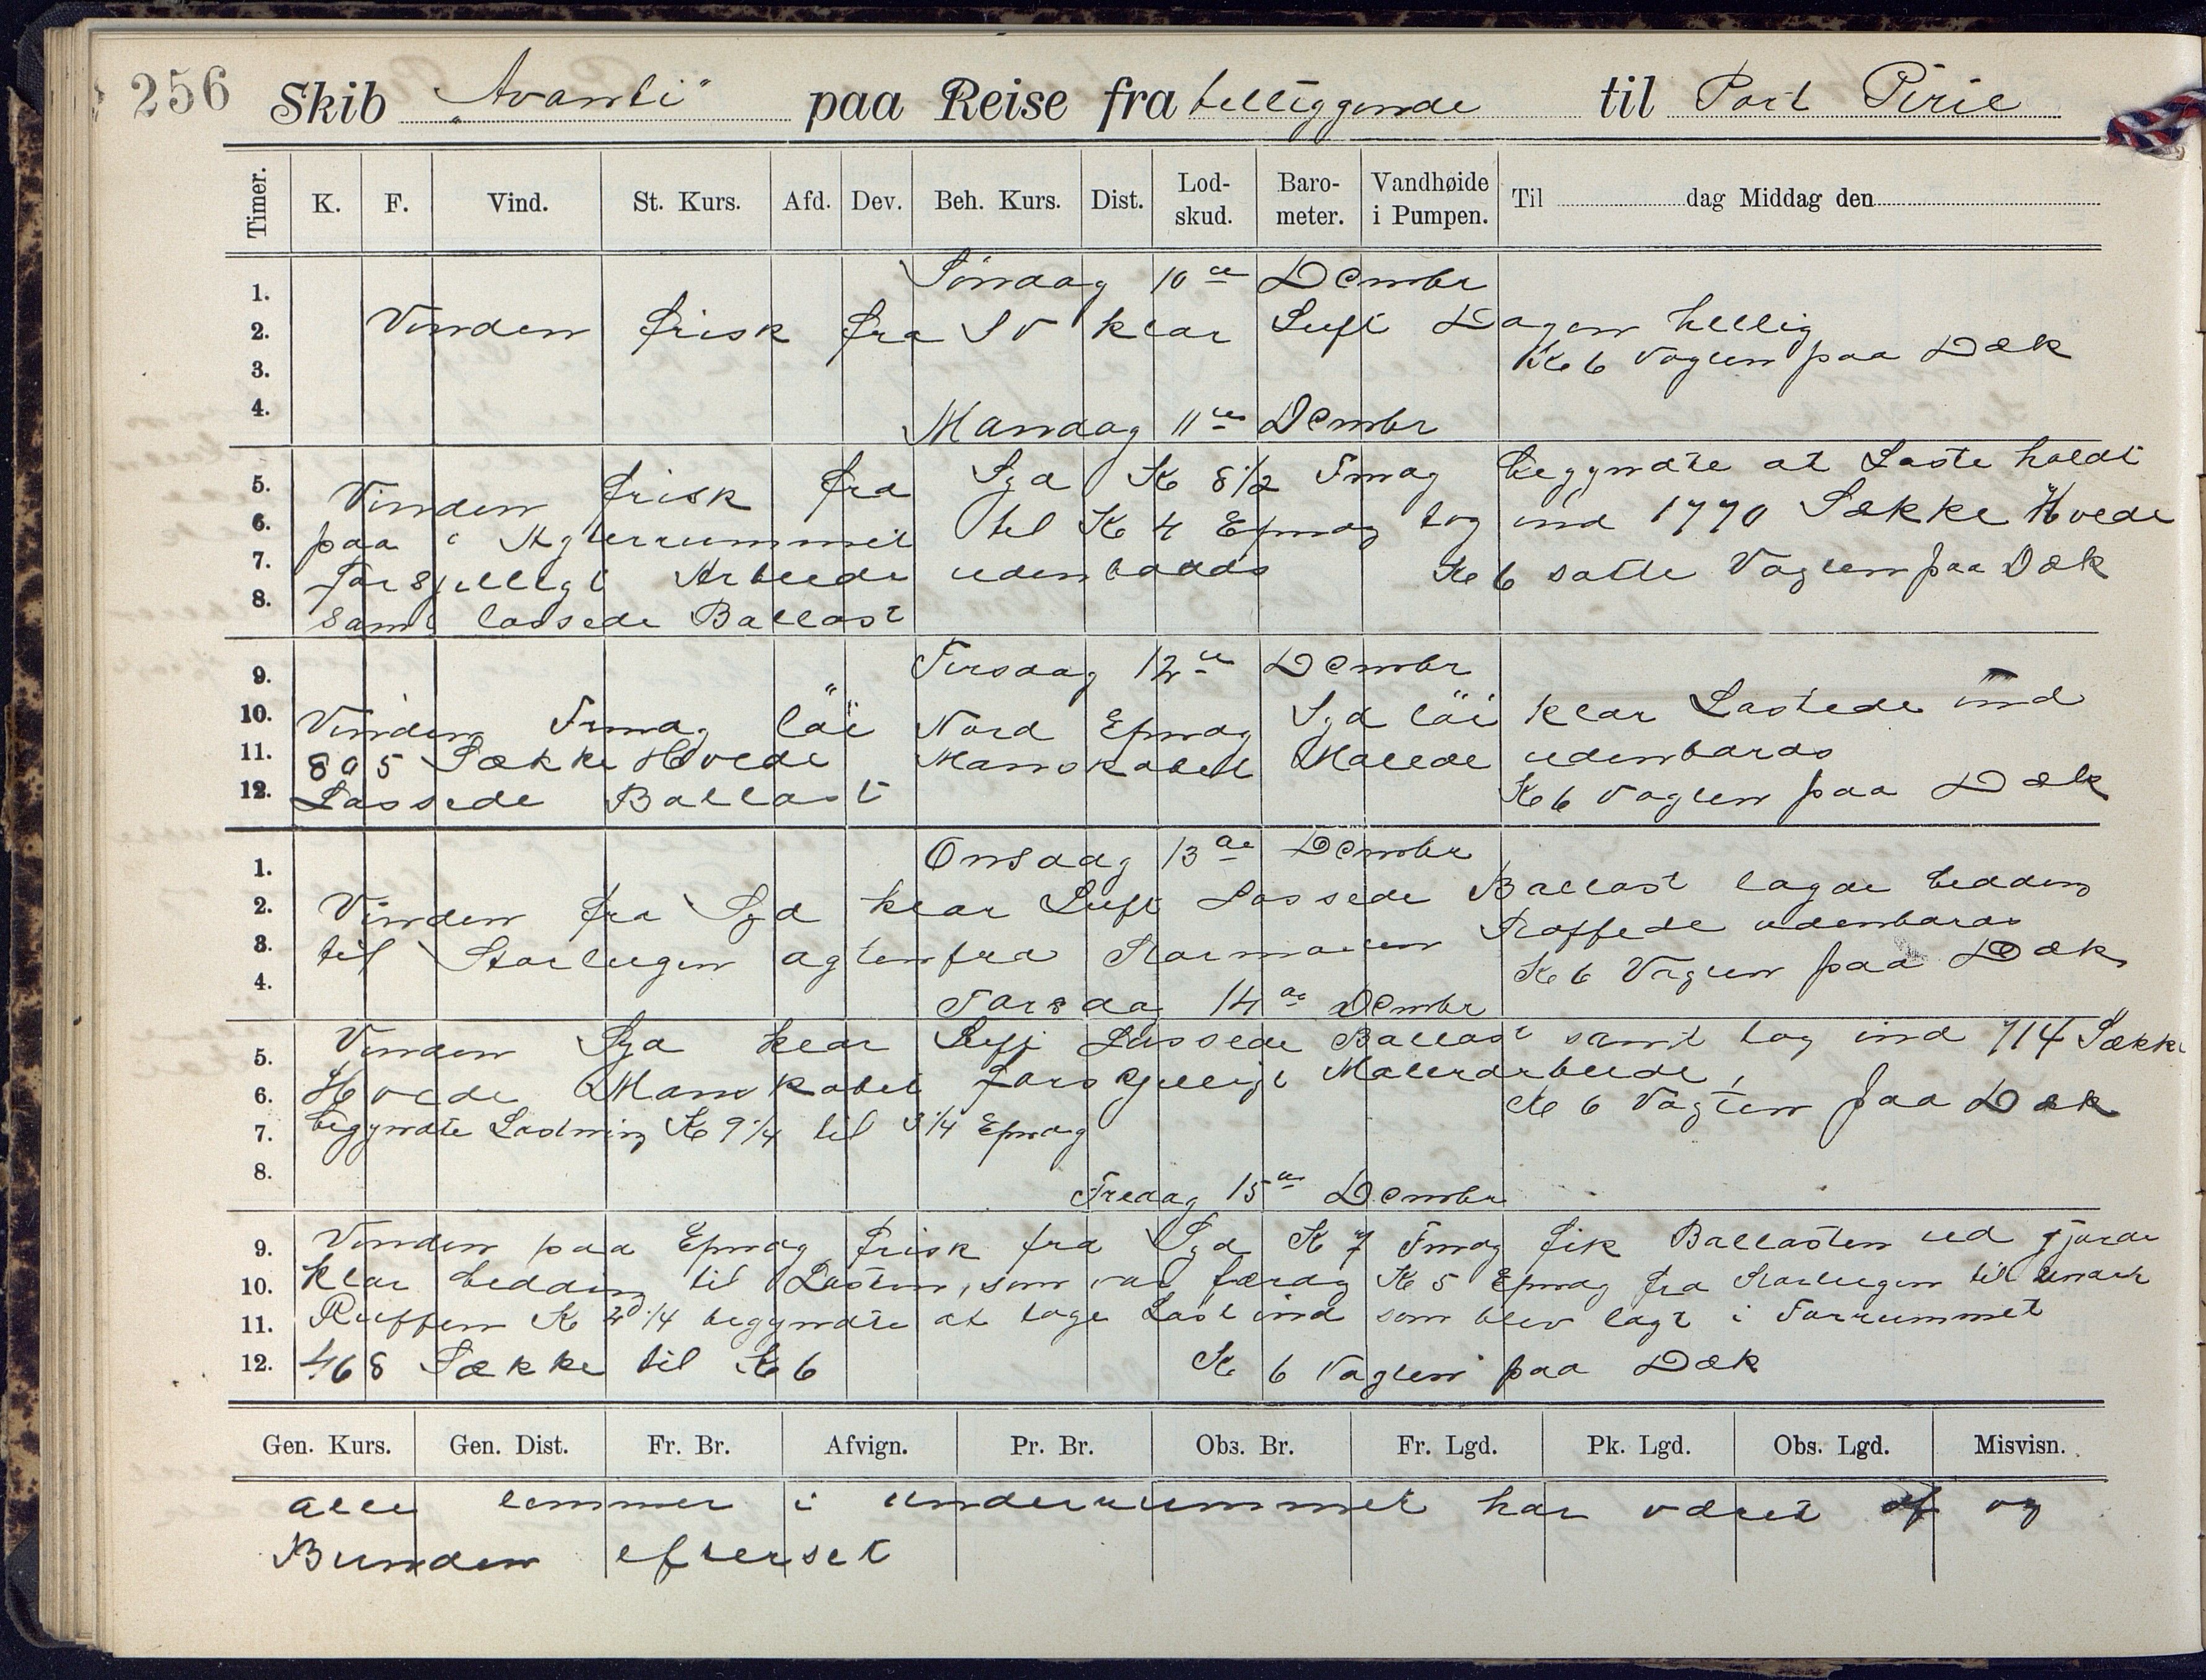 256
Skib "Avanti" paa Reise fra beliggende til Port Pirie
Timer. K. F. Vind. St. Kurs. Afd. Dev. Beh. Kurs. Dist. Lod-skud. Baro-meter. Vandhøide i Pumpen. Til dag Middag den
Søndag 10de Dcmbr
1.
2. Vinden frisk fra SV klar Luft Dagen hellig
3. Kl 6 Vagten paa Dæk
4. Mandag 11te Dcmbr
5. Vinden frisk fra Syd Kl 8 1/2 Fmdg begyndte at Laste holdt
6. paa i Agterrummet til Kl 4 Epmdg tog ind 1770 Sække Hvede
7. forsjelligt Arbeide udenbords Kl 6 satte Vagten paa Dæk
8. samt lossede Ballast
9. Tirsdag 12te Dcmbr
10. Vinden Frmdg løi Nord Epmdg Syd løi klar Lastede ind
11. 805 Sække Hvede Manskabet Malede udenbords
12. Lossede Ballast Kl 6 Vagten paa Dæk
1. Onsdag 13de Dcmbr
2. Vinden fra Syd klar Luft Lossede Ballast lagde bedding
3. til Storlugen agtenfra udenbords
4. Kl 6 Vagten paa Dæk
Torsdag 14de Dcmbr
5. Vinden Syd klar Luft Lossede Ballast samt tog ind 714 Sække
6. Hvede Manskabet forsgjelligt Malerarbeide,
Kl 6 Vagten paa Dæk
7. begyndte Lastning Kl 9 1/4 til 3 1/4 Epmdg
8. Fredag 15de Dcmbr
9. Vinden paa Epmdg frisk fra Syd Kl 7 Fmdg fik Ballasten ud gjorde
10. klar bedding til Lasten, som var færdg Kl 5 Epmdg fra Storlugen til under
11. Ruffen Kl 1/4 begyndte at tage Last ind som blev lagt i Forrummet
12. 468 Sække til Kl 6 Kl 6 Vagten paa Dæk
Gen. Kurs. Gen. Dist. Fr. Br. Afvign. Pr. Br. Obs. Br. Fr. Lgd. Pk. Lgd. Obs. Lgd. Misvisn.
alle lemmer i underrummet har været af og
Bunden efterset